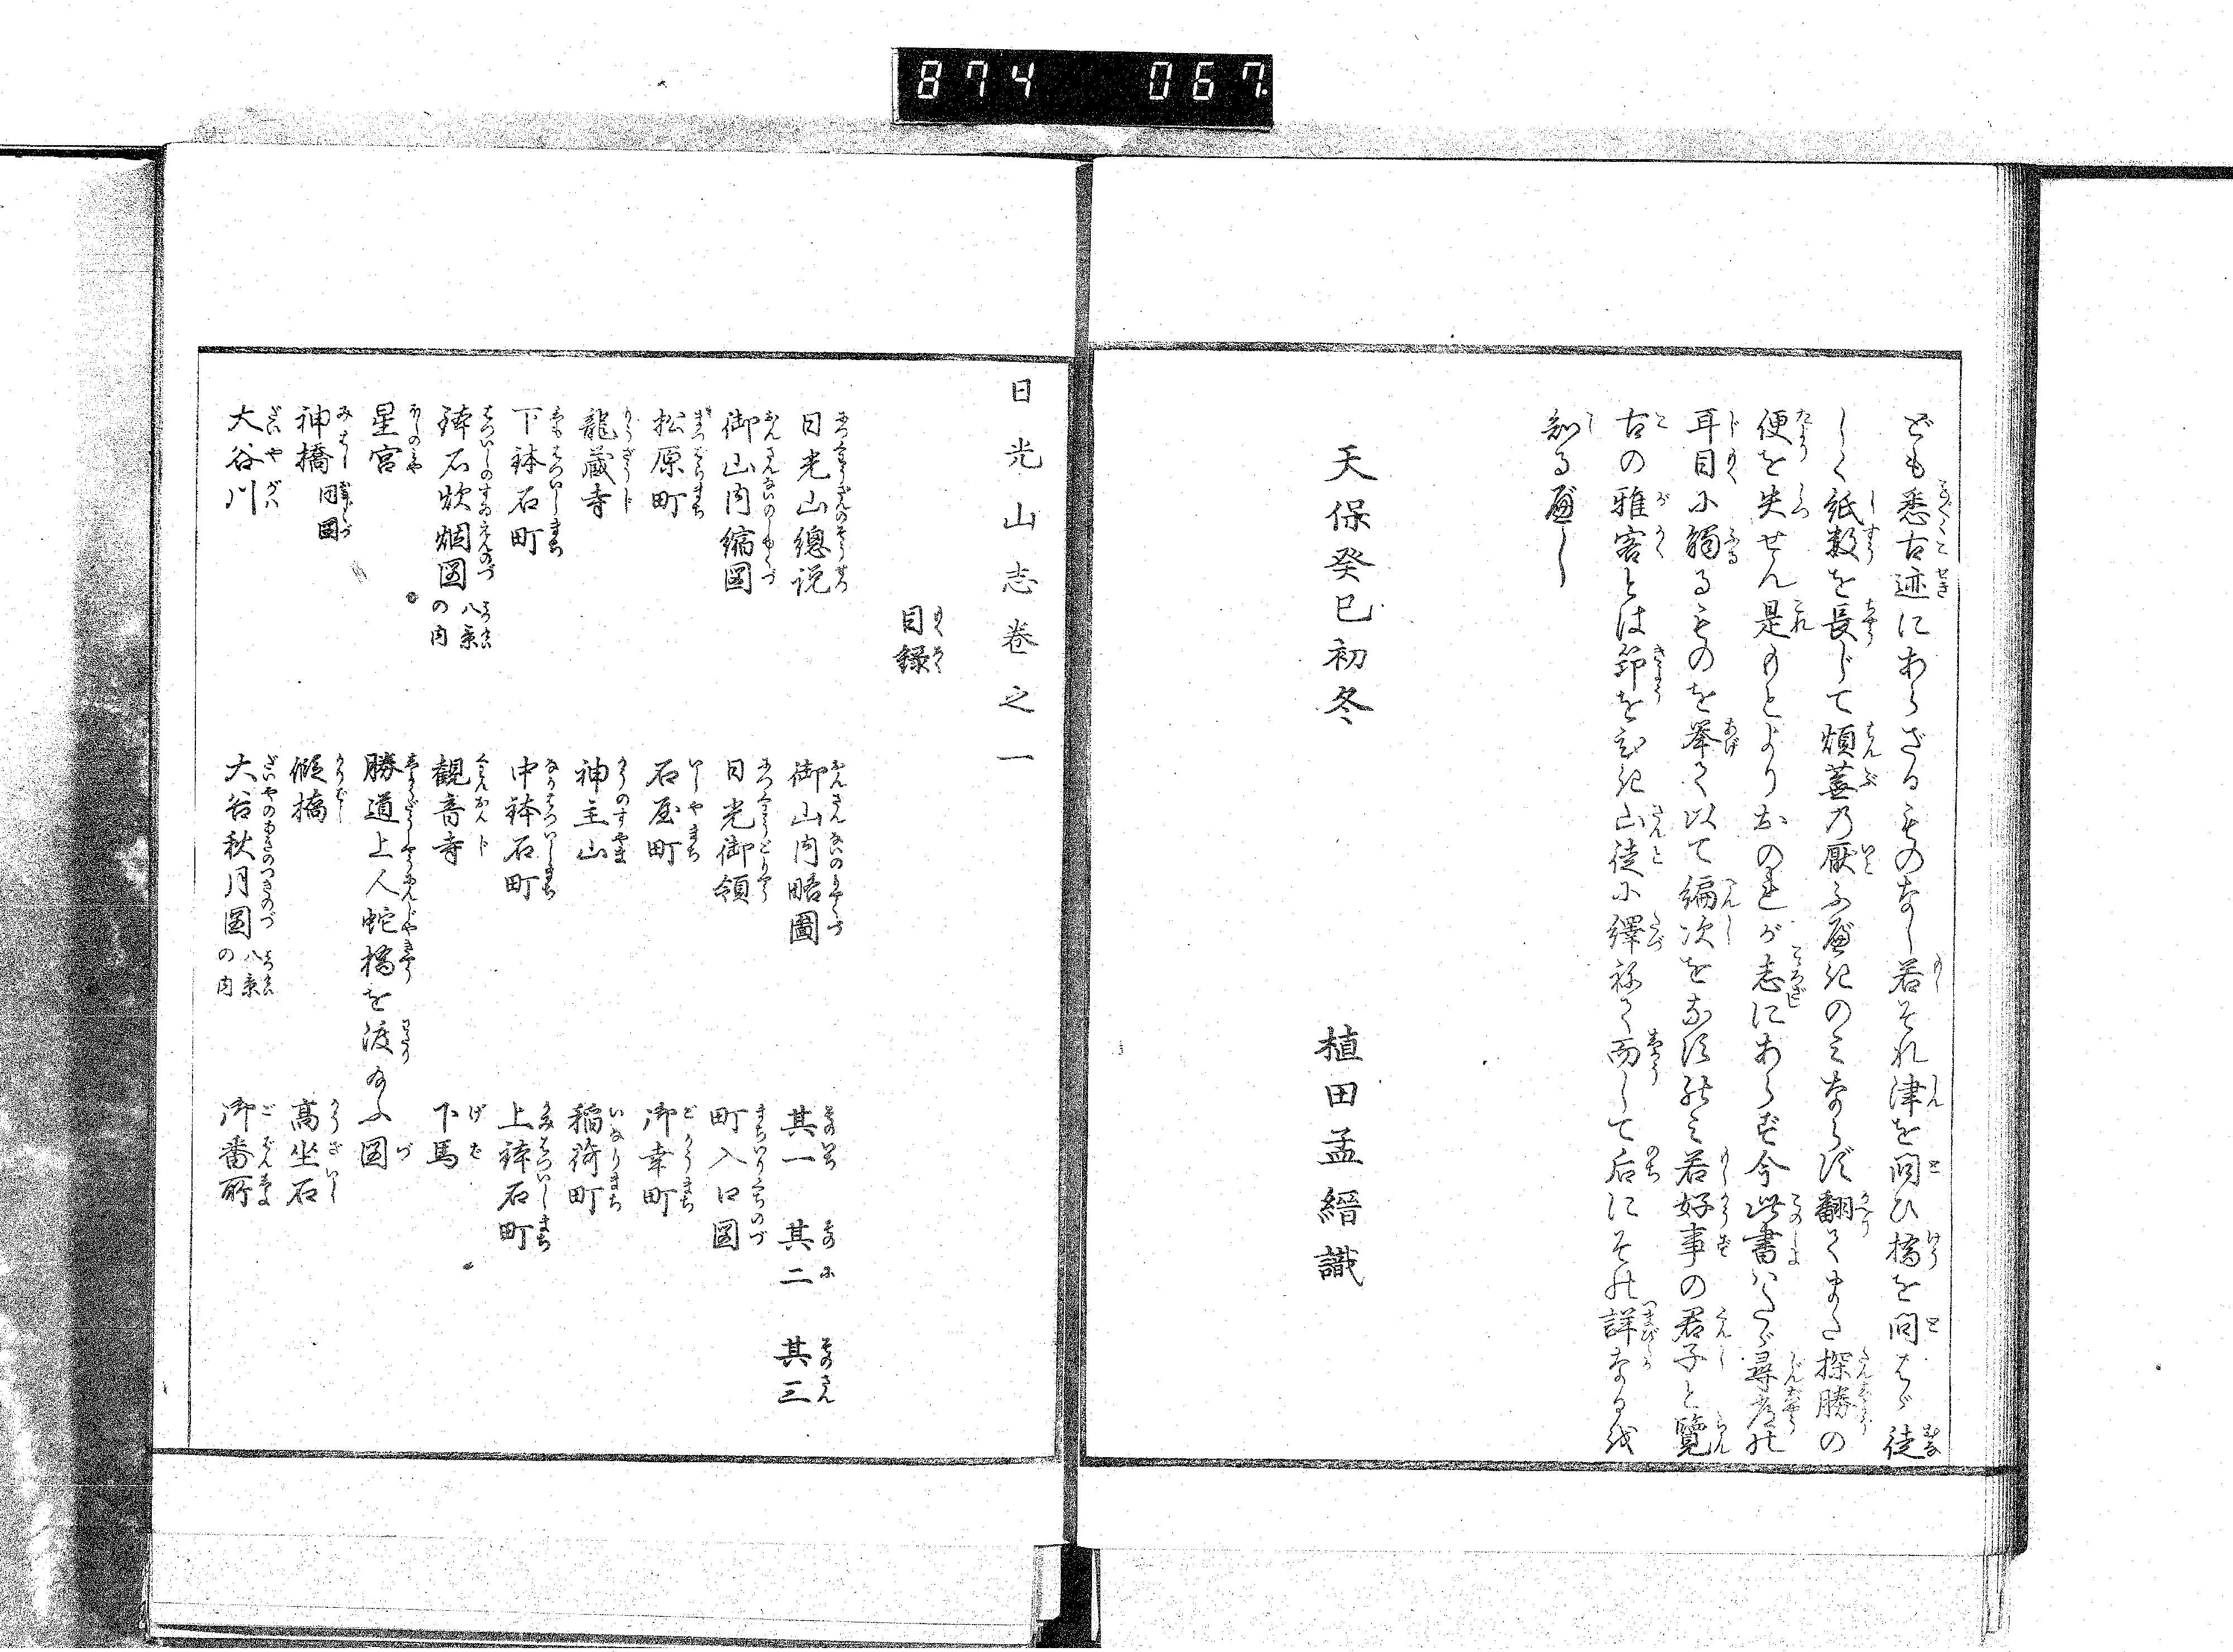 874 067
ども悉古迹にあらざるものなし若それ津を問ひ橋を問はゞ徒
しく紙数を長じて煩蕪の厭ふべきのみならず翻てまた探勝の
便を失せん是もとよりおのれが志にあらず今此書はたゞ尋常の
耳目に觸るものを挙て以て編次をなすのミ若好事の君子と覽
古の雅客とは節をひき山徒に繹ねて而して后にその詳なる越
知るべし
天保癸巳初冬
植田孟縉識
日光山志卷之一
目録
日光山總説 御山内略圖 其一 其二 其三
御山内縮図 日光御領 町入口図
松原町 石屋町 御幸町
龍蔵寺 神主山 稲荷町
下鉢石町 中鉢石町 上鉢石町
鉢石炊烟図 八景の内 観音寺 下馬
星宮 勝道上人蛇橋を渡給ふ図
神橋 同図 假橋 高坐石
大谷川 大谷秋月図 八景の内 御番所